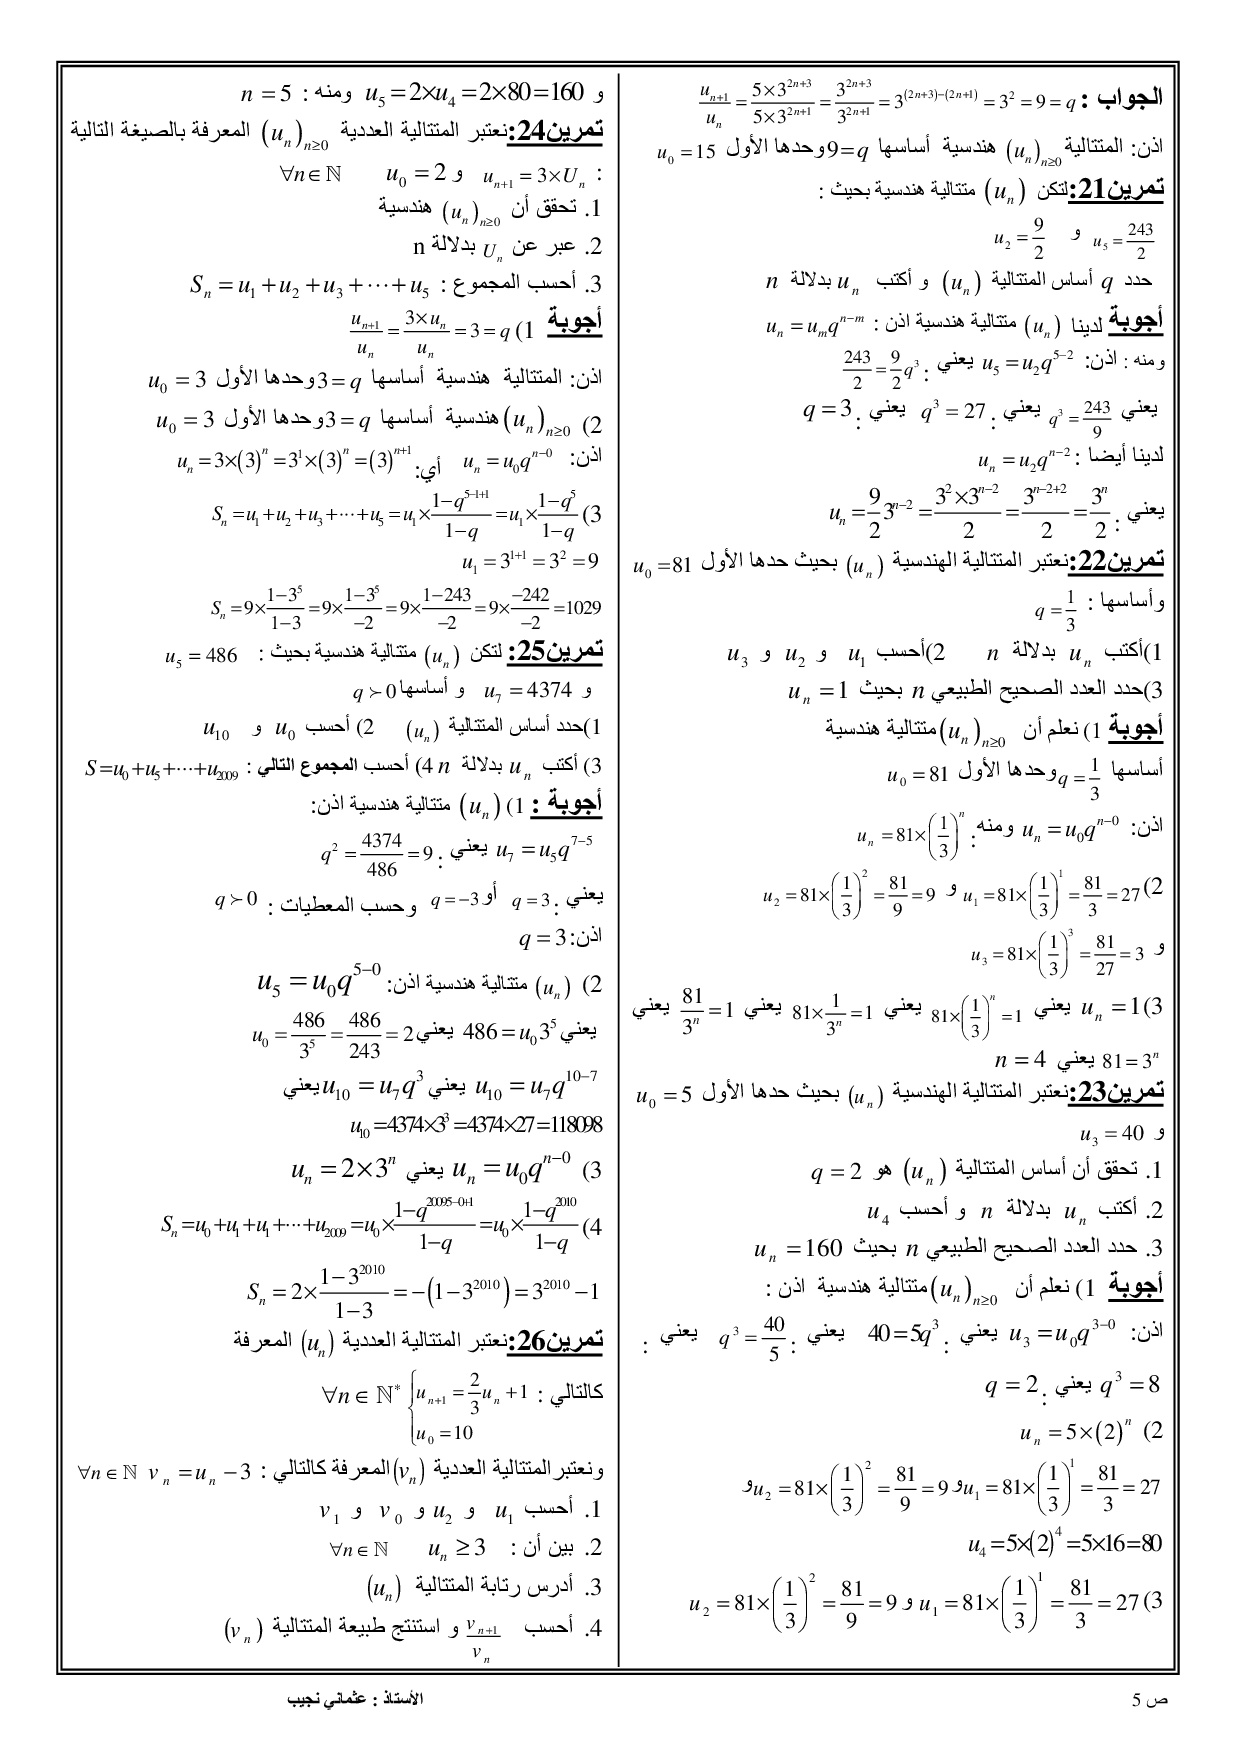 الجواب : $\frac{u_{n+1}}{u_n}=\frac{5\times 3^{2n+3}}{5\times 3^{2n+1}}=\frac{3^{2n+3}}{3^{2n+1}}=3^{(2n+3)-(2n+1)}=3^2=9=q$
اذن: المتتالية $(u_n)_{n\geq 0}$ هندسية أساسها $9=q$ وحدها الأول $u_0=15$
تمرين21:لتكن $(u_n)$ متتالية هندسية بحيث :
$u_5=\frac{243}{2}$ و $u_2=\frac{9}{2}$
حدد $q$ أساس المتتالية $(u_n)$ و أكتب $u_n$ بدلالة $n$
أجوبة لدينا $(u_n)$ متتالية هندسية اذن : $u_n=u_mq^{n-m}$
ومنه : اذن: $u_5=u_2q^{5-2}$ يعني : $\frac{243}{2}=\frac{9}{2}q^3$
يعني $q^3=\frac{243}{9}$ يعني : $q^3=27$ يعني : $q=3$
لدينا أيضا : $u_n=u_2q^{n-2}$
يعني : $u_n=\frac{9}{2}3^{n-2}=\frac{3^2\times 3^{n-2}}{2}=\frac{3^{n-2+2}}{2}=\frac{3^n}{2}$
تمرين22:نعتبر المتتالية الهندسية $(u_n)$ بحيث حدها الأول $u_0=81$
وأساسها : $q=\frac{1}{3}$
1)أكتب $u_n$ بدلالة $n$ 2)أحسب $u_1$ و $u_2$ و $u_3$
3)حدد العدد الصحيح الطبيعي $n$ بحيث $u_n=1$
أجوبة 1) نعلم أن $(u_n)_{n\geq 0}$ متتالية هندسية
أساسها $q=\frac{1}{3}$ وحدها الأول $u_0=81$
اذن: $u_n=u_0q^{n-0}$ ومنه : $u_n=81\times\left(\frac{1}{3}\right)^n$
2) $u_1=81\times\left(\frac{1}{3}\right)^1=\frac{81}{3}=27$ و $u_2=81\times\left(\frac{1}{3}\right)^2=\frac{81}{9}=9$
و $u_3=81\times\left(\frac{1}{3}\right)^3=\frac{81}{27}=3$
3) $u_n=1$ يعني $81\times\left(\frac{1}{3}\right)^n=1$ يعني $81\times\frac{1}{3^n}=1$ يعني $\frac{81}{3^n}=1$ يعني
$81=3^n$ يعني $n=4$
تمرين23:نعتبر المتتالية الهندسية $(u_n)$ بحيث حدها الأول $u_0=5$
و $u_3=40$
1. تحقق أن أساس المتتالية $(u_n)$ هو $q=2$
2. أكتب $u_n$ بدلالة $n$ و أحسب $u_4$
3. حدد العدد الصحيح الطبيعي $n$ بحيث $u_n=160$
أجوبة 1) نعلم أن $(u_n)_{n\geq 0}$ متتالية هندسية اذن :
اذن: $u_3=u_0q^{3-0}$ يعني : $40=5q^3$ يعني : $q^3=\frac{40}{5}$ يعني :
$q^3=8$ يعني : $q=2$
2) $u_n=5\times(2)^n$
$u_1=81\times\left(\frac{1}{3}\right)^1=\frac{81}{3}=27$ و $u_2=81\times\left(\frac{1}{3}\right)^2=\frac{81}{9}=9$ و
$u_4=5\times(2)^4=5\times 16=80$
3) $u_1=81\times\left(\frac{1}{3}\right)^1=\frac{81}{3}=27$ و $u_2=81\times\left(\frac{1}{3}\right)^2=\frac{81}{9}=9$
و $u_5=2\times u_4=2\times 80=160$ ومنه : $n=5$
تمرين24:نعتبر المتتالية العددية $(u_n)_{n\geq 0}$ المعرفة بالصيغة التالية
: $u_{n+1}=3\times U_n$ و $u_0=2$ $\forall n\in\mathbb{N}$
1. تحقق أن $(u_n)_{n\geq 0}$ هندسية
2. عبر عن $U_n$ بدلالة n
3. أحسب المجموع : $S_n=u_1+u_2+u_3+\cdots+u_5$
أجوبة 1) $\frac{u_{n+1}}{u_n}=\frac{3\times u_n}{u_n}=3=q$
اذن: المتتالية هندسية أساسها $3=q$ وحدها الأول $u_0=3$
2) $(u_n)_{n\geq 0}$ هندسية أساسها $3=q$ وحدها الأول $u_0=3$
اذن: $u_n=u_0q^{n-0}$ أي: $u_n=3\times(3)^n=3^1\times(3)^n=(3)^{n+1}$
3) $S_n=u_1+u_2+u_3+\cdots+u_5=u_1\times\frac{1-q^{5-1+1}}{1-q}=u_1\times\frac{1-q^5}{1-q}$
$u_1=3^{1+1}=3^2=9$
$S_n=9\times\frac{1-3^5}{1-3}=9\times\frac{1-3^5}{-2}=9\times\frac{1-243}{-2}=9\times\frac{-242}{-2}=1029$
تمرين25: لتكن $(u_n)$ متتالية هندسية بحيث : $u_5=486$
و $u_7=4374$ و أساسها $q\succ 0$
1)حدد أساس المتتالية $(u_n)$ 2) أحسب $u_0$ و $u_{10}$
3) أكتب $u_n$ بدلالة $n$ 4) أحسب المجموع التالي : $S=u_0+u_5+\cdots+u_{2009}$
أجوبة : 1) $(u_n)$ متتالية هندسية اذن:
$u_7=u_5q^{7-5}$ يعني : $q^2=\frac{4374}{486}=9$
يعني : $q=3$ أو $q=-3$ وحسب المعطيات : $q\succ 0$
اذن: $q=3$
2) $(u_n)$ متتالية هندسية اذن: $u_5=u_0q^{5-0}$
يعني $486=u_03^5$ يعني $u_0=\frac{486}{3^5}=\frac{486}{243}=2$
$u_{10}=u_7q^{10-7}$ يعني $u_{10}=u_7q^3$ يعني
$u_{10}=4374\times 3^3=4374\times 27=118098$
3) $u_n=u_0q^{n-0}$ يعني $u_n=2\times 3^n$
4) $S_n=u_0+u_1+u_1+\cdots+u_{2009}=u_0\times\frac{1-q^{20095-0+1}}{1-q}=u_0\times\frac{1-q^{2010}}{1-q}$
$S_n=2\times\frac{1-3^{2010}}{1-3}=-(1-3^{2010})=3^{2010}-1$
تمرين26:نعتبر المتتالية العددية $(u_n)$ المعرفة
كالتالي : $\begin{cases}u_{n+1}=\frac{2}{3}u_n+1\\u_0=10\end{cases}$ $\forall n\in\mathbb{N}^*$
ونعتبرالمتتالية العددية $(v_n)$ المعرفة كالتالي : $v_n=u_n-3$ $\forall n\in\mathbb{N}$
1. أحسب $u_1$ و $u_2$ و $v_0$ و $v_1$
2. بين أن : $u_n\geq 3$ $\forall n\in\mathbb{N}$
3. أدرس رتابة المتتالية $(u_n)$
4. أحسب $\frac{v_{n+1}}{v_n}$ و استنتج طبيعة المتتالية $(v_n)$
ص 5
الأستاذ : عثماني نجيب